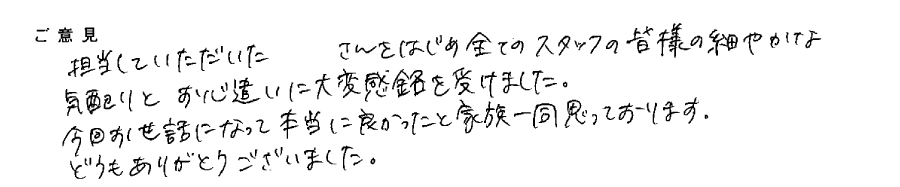 ご意見
担当していただいた さんをはじめ全てのスタッフの皆様の細やかな
気配りと お心遣いに大変感銘を受けました。
今回お世話になって本当に良かったと家族一同思っております。
どうもありがとうございました。